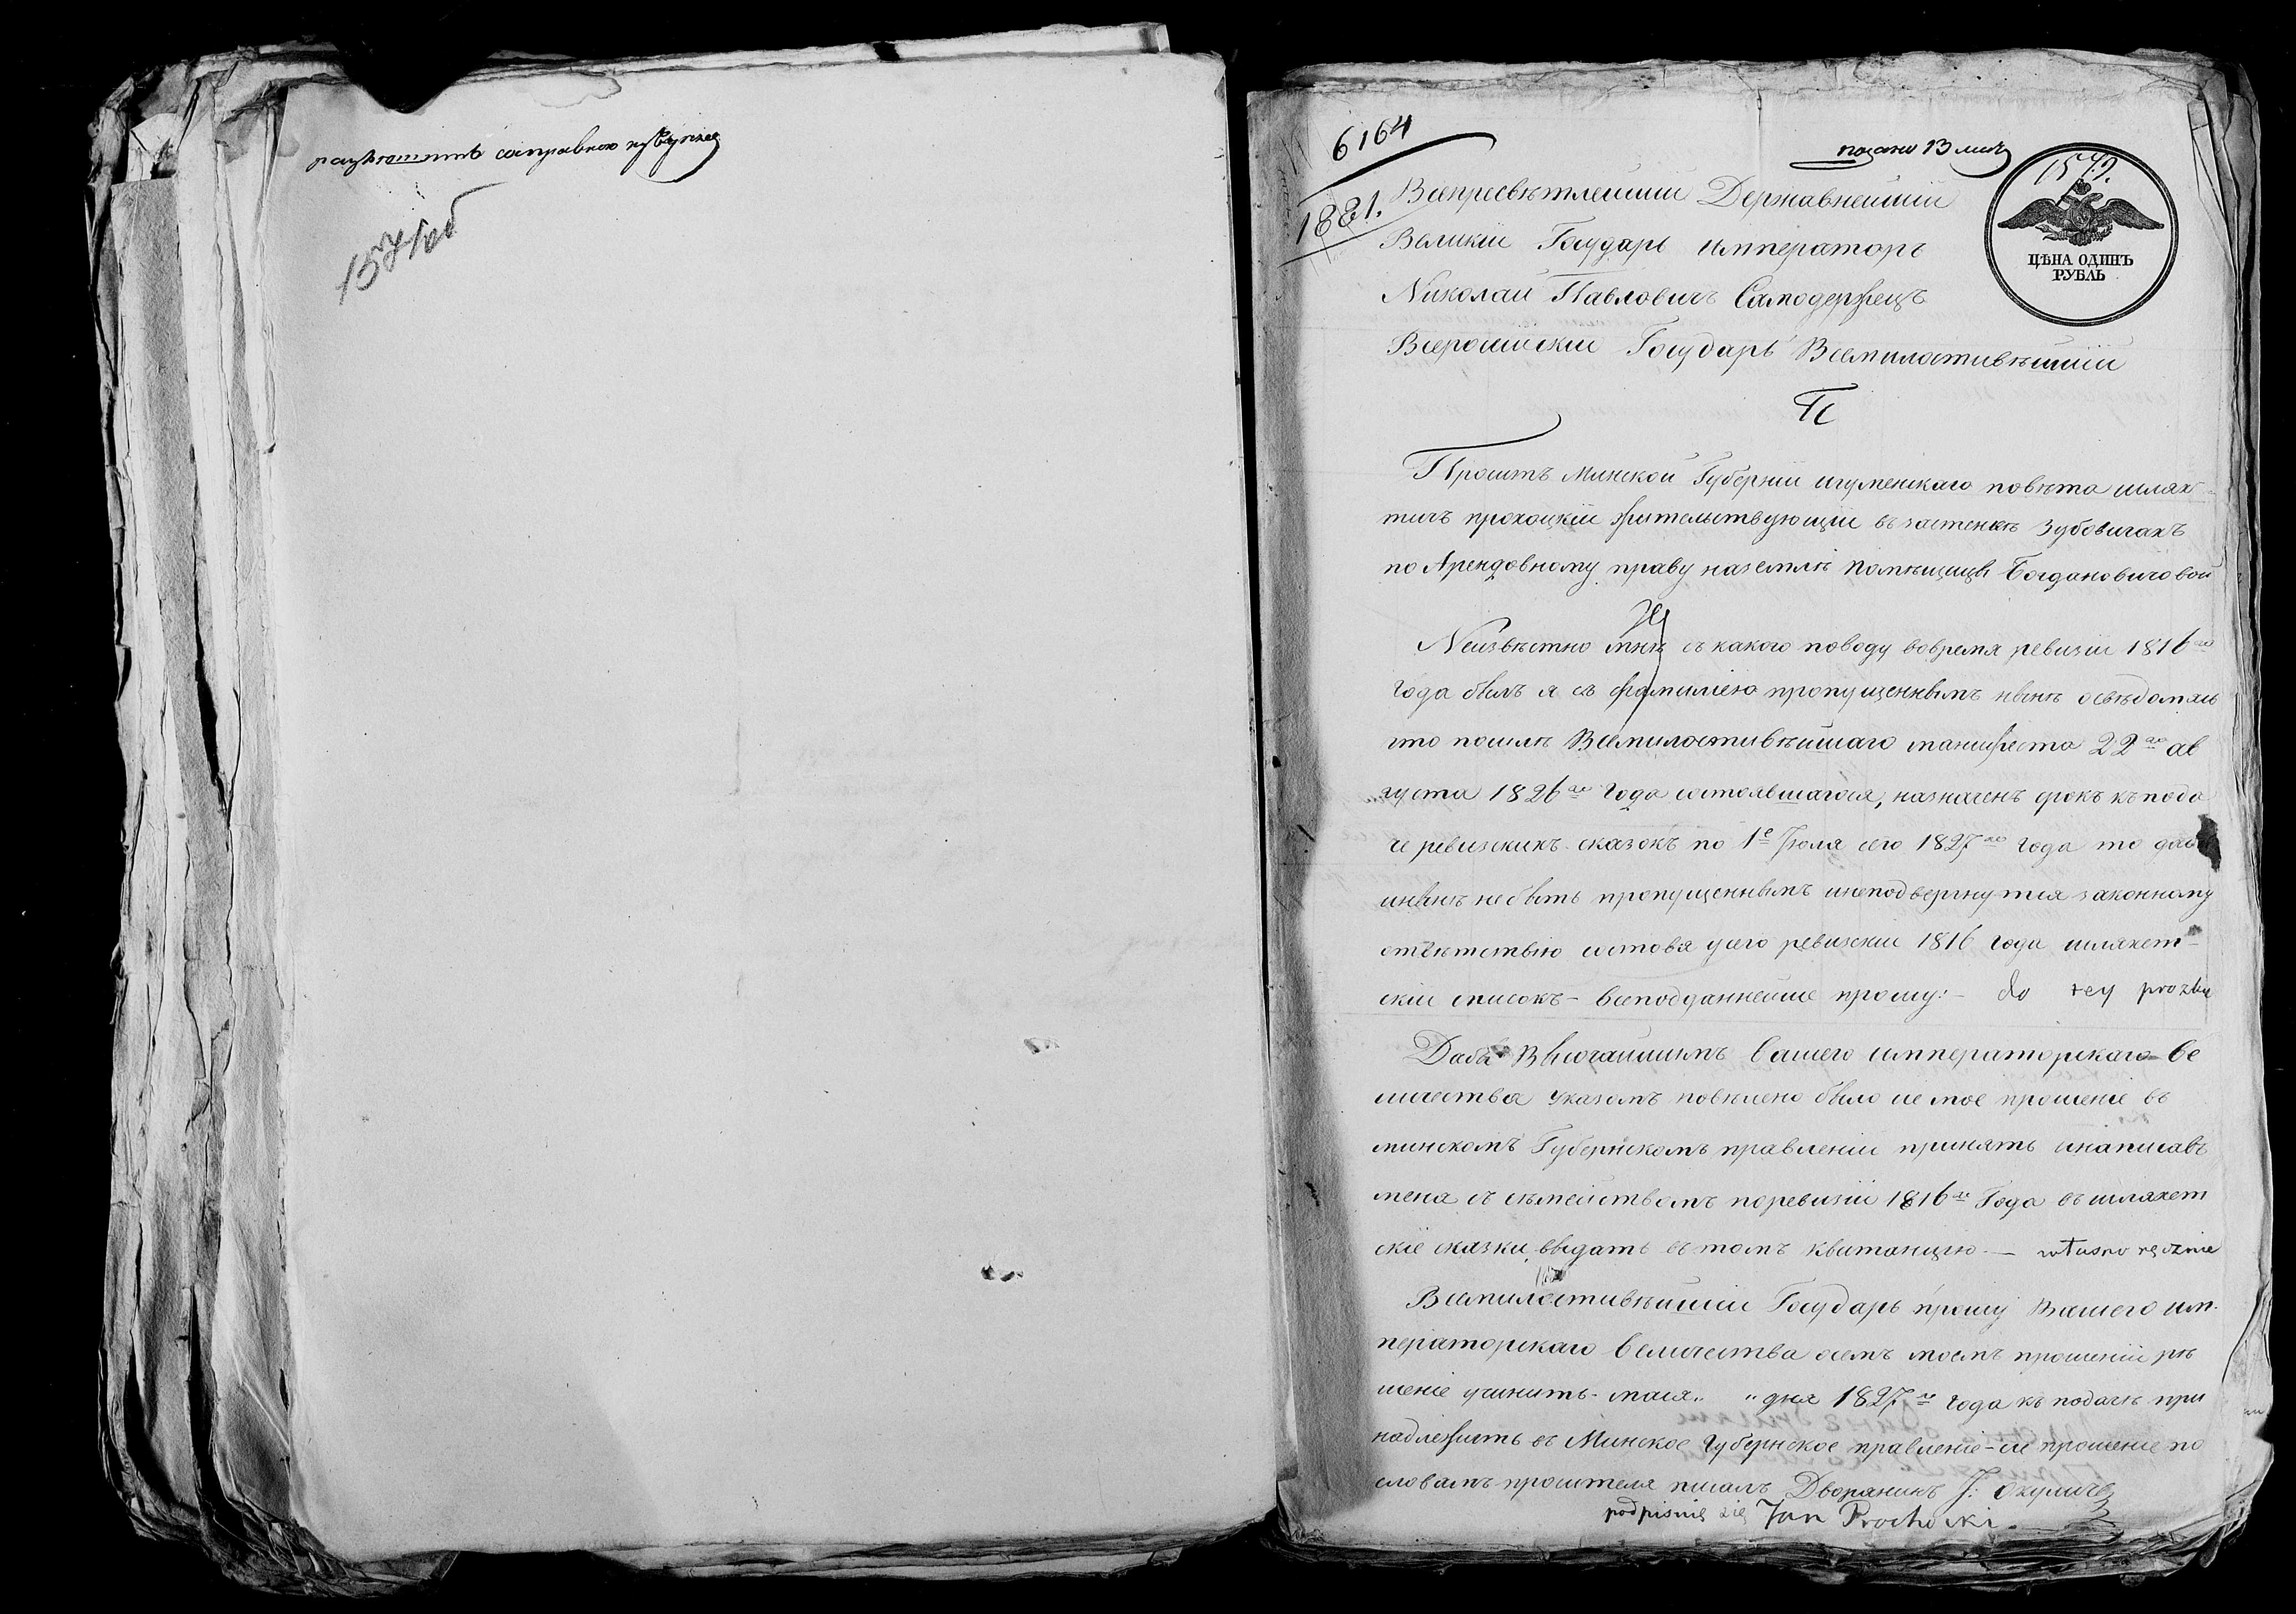 1571об
6164
подано 13 маія
1572.
1881.
ЦѢНА ОДИНЪ
РУБЛЬ
Всепресвѣтлейшій Державнейшій
Великій Государь Императоръ
Николай Павловичъ Самодержецъ
Всеросійскій Государь Всемилостивѣйшій
Проситъ Минской Губерніи игуменскаго повѣта шлях-
тичъ прохоцкій жительствующій въ застенкѣ Зубовичахъ
по Арендовному праву на землѣ помѣщицы Богдановичовой
Неизвѣстно мнѣ съ какого поводу вовремя ревизіи 1816го
года былъ я съ фамиліею пропущеннымъ нынѣ освѣдомясь
что посилѣ Всемилостивѣйшаго манифеста 22го ав
густа 1826го года состоявшагося, назначенъ срокъ къ пода
че ревизскихъ сказокъ по 1е Іюля сего 1827го года то дабы
инынѣ небыть пропущеннымъ инеподвергнутся законному
отвѣтствію состовя у сего ревизскій 1816 года шляхет-
скій списокъ - всеподданнейше прошу:- do tey prozby
Дабы Высочайшимъ Вашего императорскаго ве
личества указомъ повѣлено было сіе мое прошеніе въ
минскомъ Губернскомъ правленіи принять инаписавъ
меня съ сѣмействомъ поревизіи 1816го Года въ шляхет
скіе сказки, выдать въ томъ квитанцію.— własno ręcznie
Всемилостивѣйшій Государь прошу Вашего им-
ператорскаго величества осемъ моемъ прошеніи рѣ
шеніе учинить. маія „ „ дня 1827го года къ подачѣ при
надлежитъ въ Минское губернское правленіе - сіе прошеніе по
словамъ просителя писалъ Дворянинъ J: Окуличъ
podpisuię się Jan Prochocki.